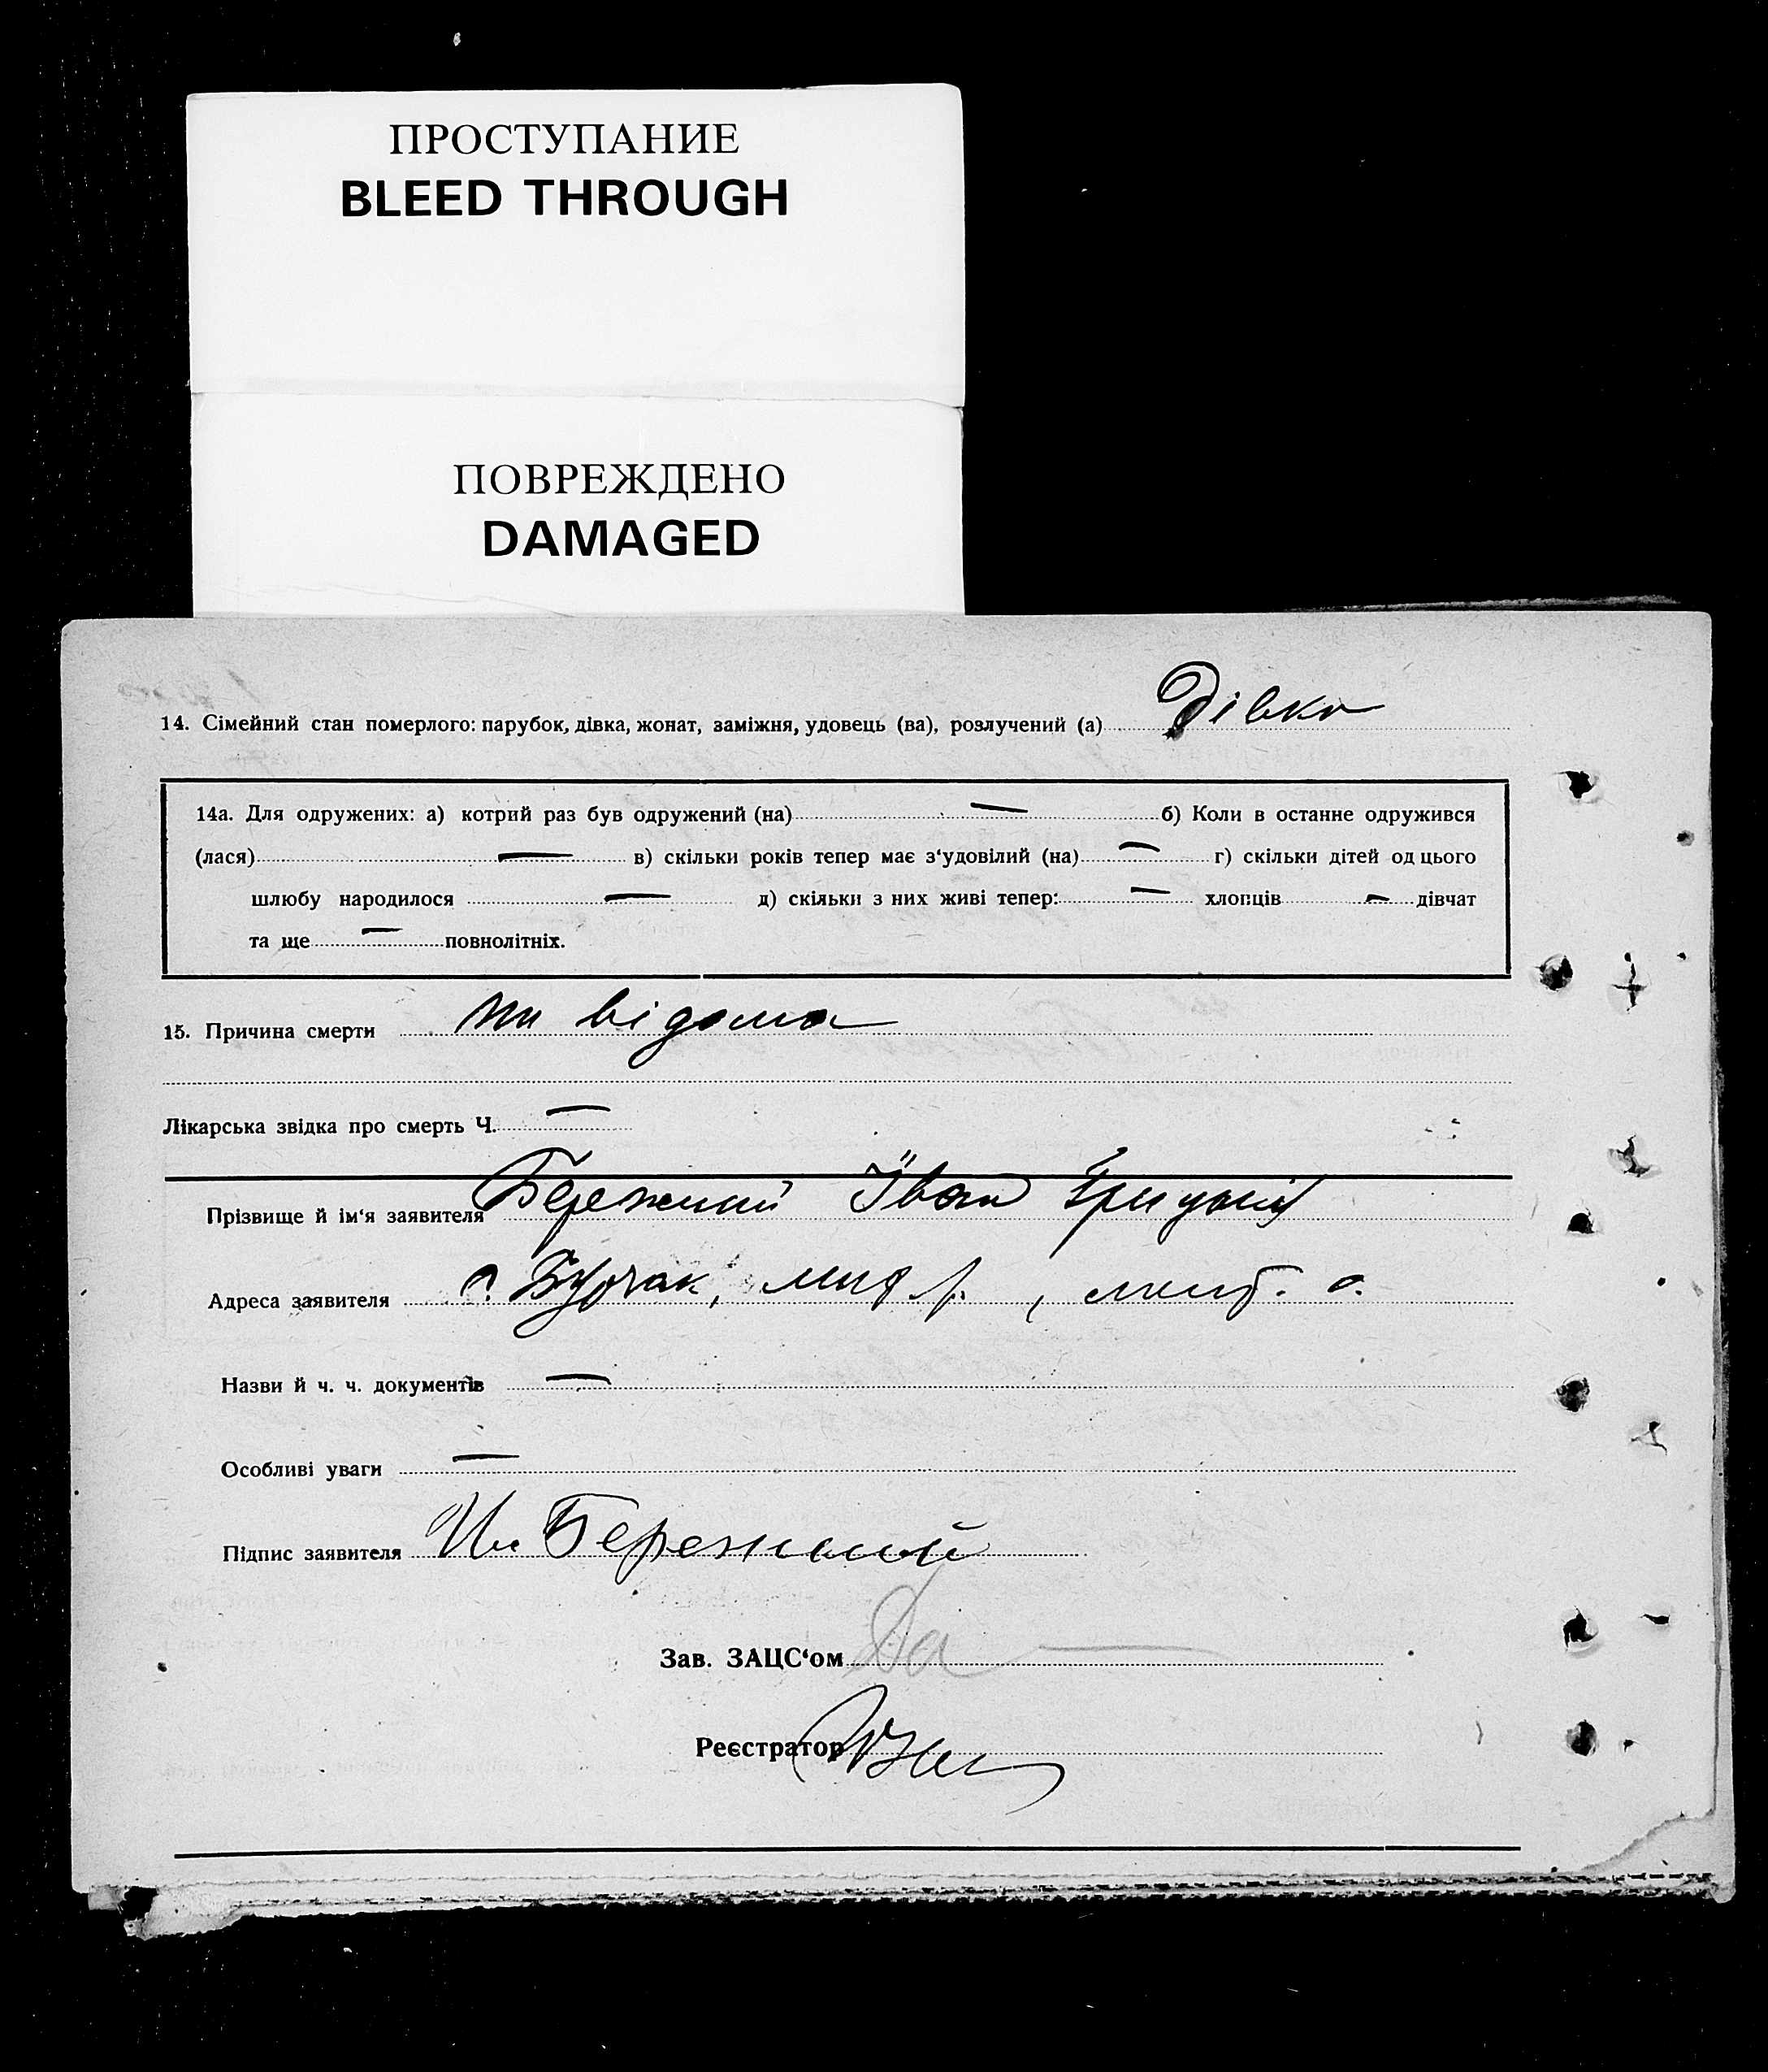 ПРОСТУПАНИЕ
BLEED THROUGH
ПОВРЕЖДЕНО
DAMAGED
14. Сімейний стан померлого: парубок, дівка, жонат, заміжня, удовець (ва), розлучений (а) Дівка
14а. Для одружених: а) котрий раз був одружений (на) — б) Коли в останне одружився
(лася) — в) скільки років тепер має з‘удовілий (на) — г) скільки дітей од цього
шлюбу народилося — д) скільки з них живі тепер: — хлопців — дівчат
та ще — повнолітніх.
15. Причина смерти ни відома
Лікарська звідка про смерть Ч. —
Прізвище й ім‘я заявителя Бережний Іван
Адреса заявителя с. Бучак,
Назви й ч. ч. документів —
Особливі уваги —
Підпис заявителя Ив Бережний
Зав. ЗАЦС‘ом
Реєстратор